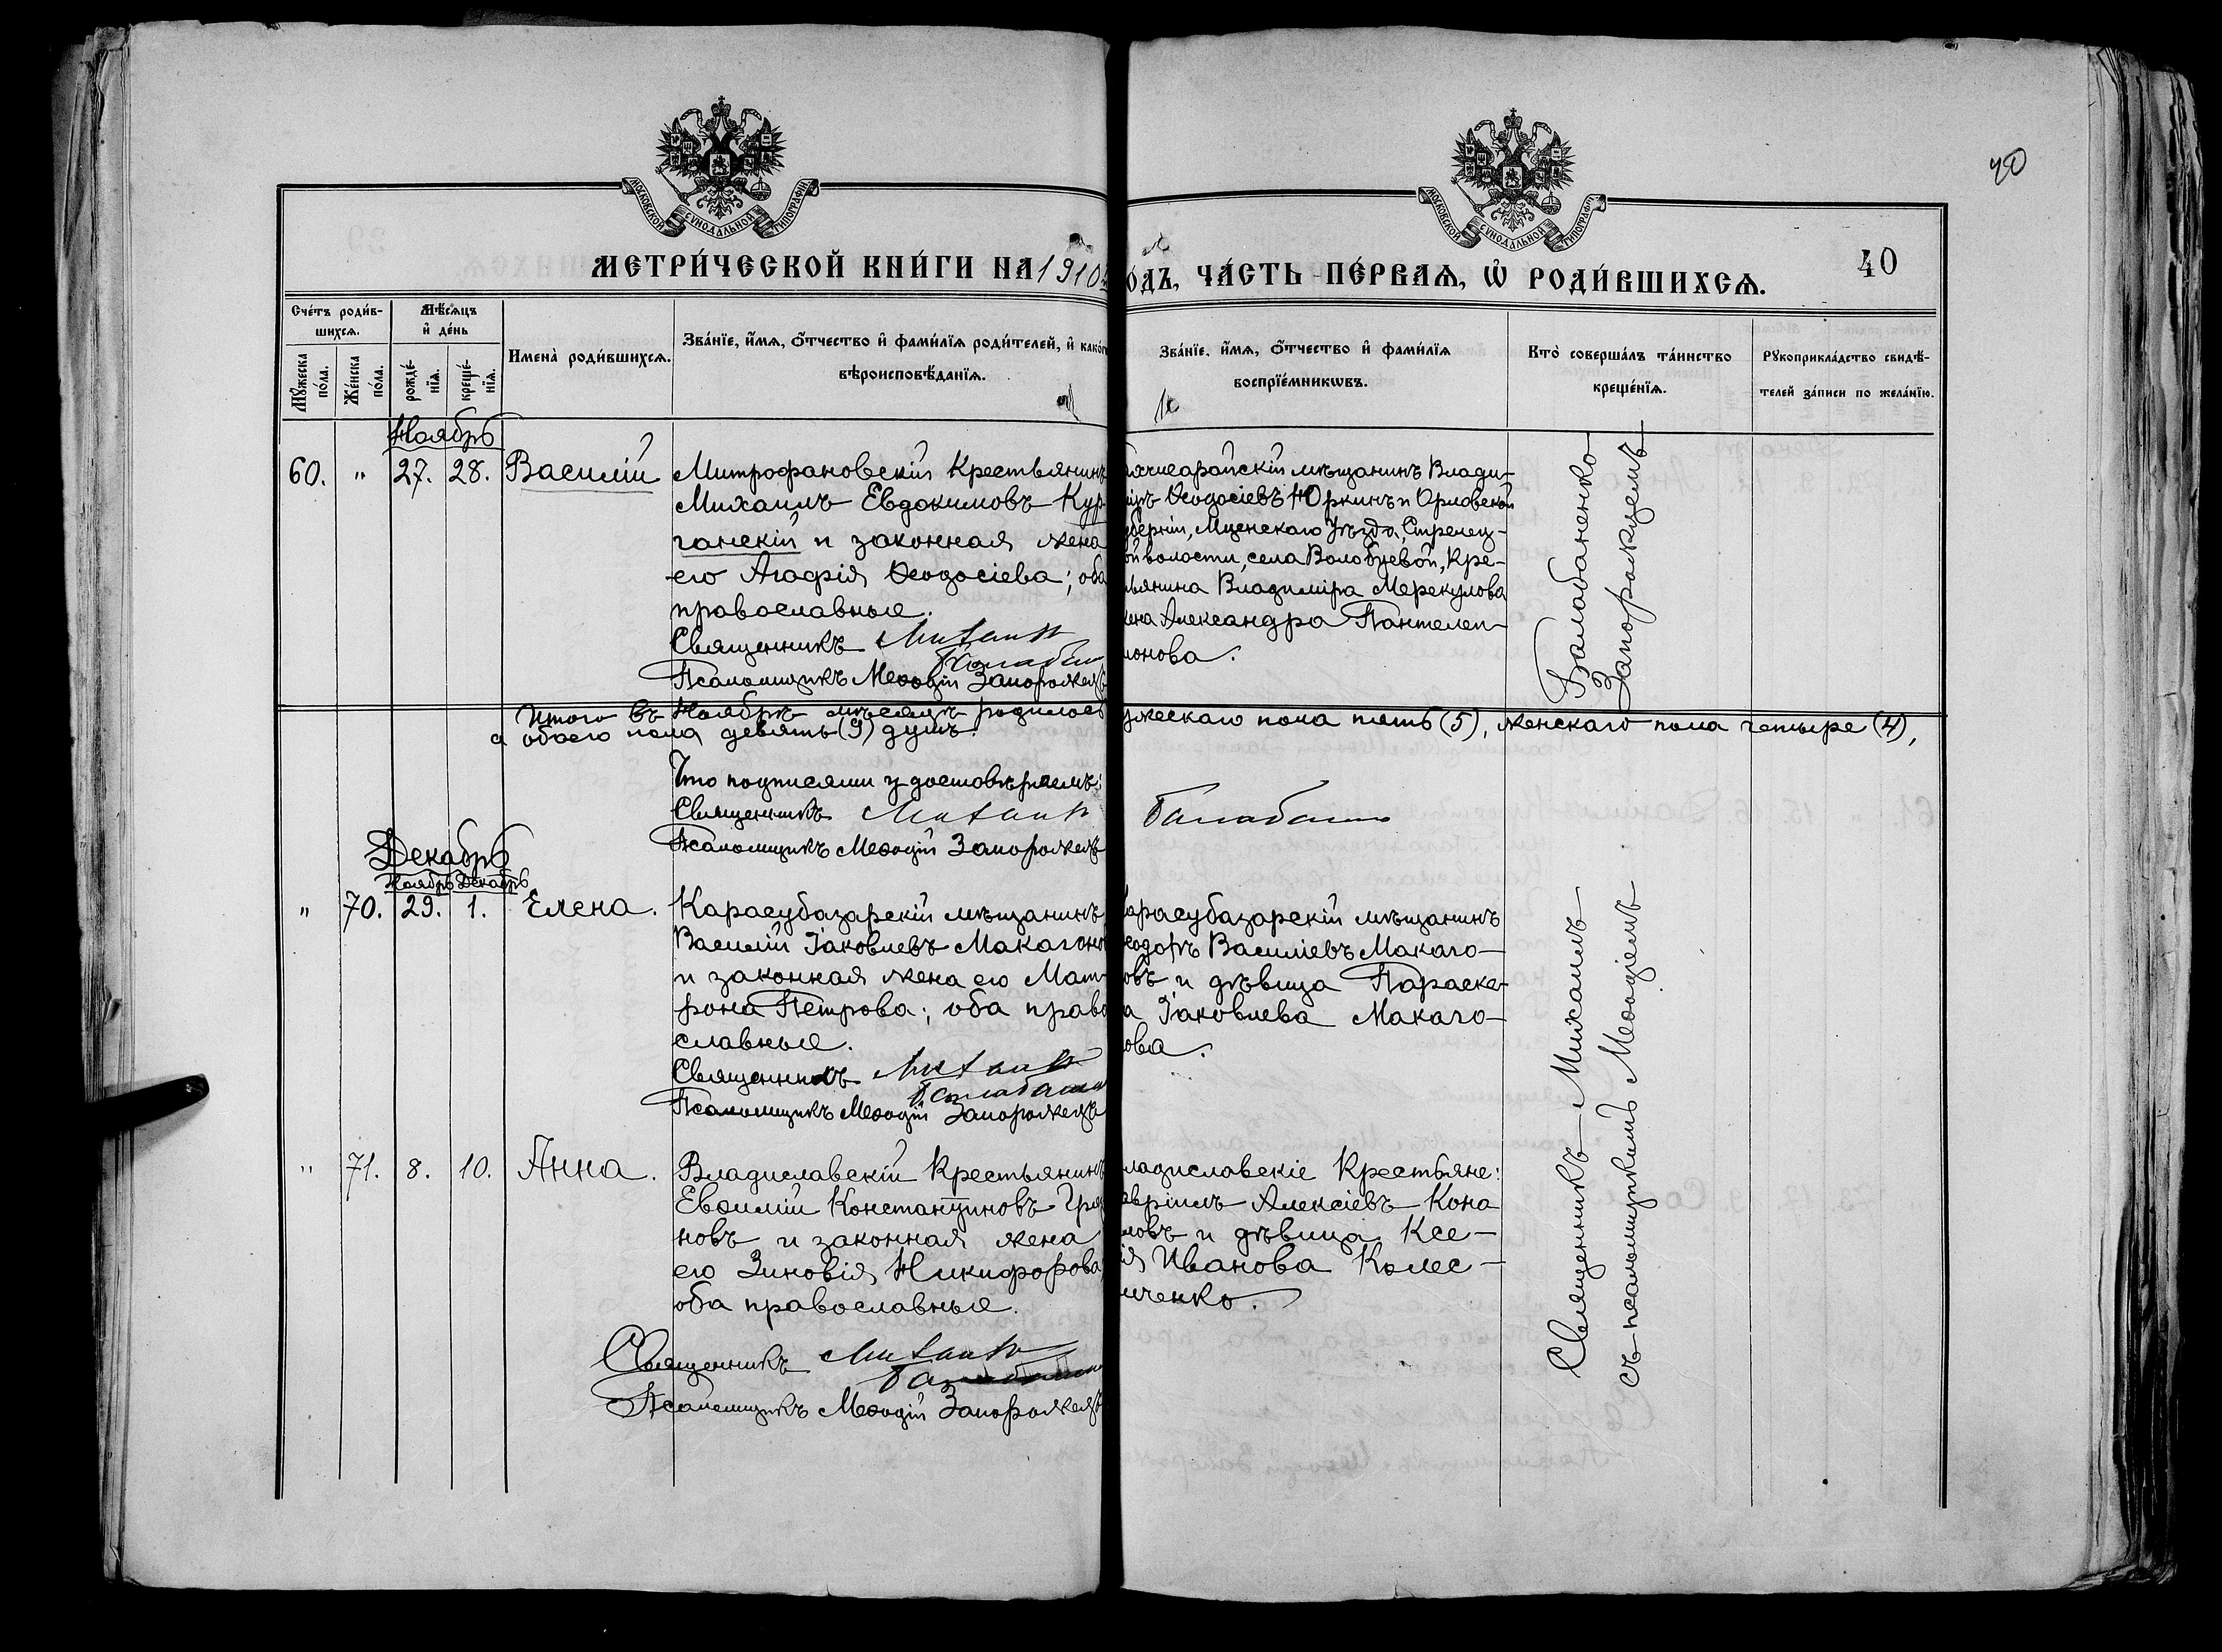 40
МОСКОВСКОЙ СѴНОДАЛЬНОЙ ТИПОГРАФІИ
МОСКОВСКОЙ СѴНОДАЛЬНОЙ ТИПОГРАФІИ
МЕТРИ́ЧЕСКОЙ КНИ́ГИ НА 1910
ОДЪ, ЧА́СТЬ ПЕ́РВАѦ, Ѡ РОДИ́ВШИХСѦ.
40
Сче́тъ роди́в-
шихсѧ.
Мꙋ́жеска
по́ла.
Же́нска
по́ла.
Мѣ́сѧцъ
и҆ де́нь
рожде́-
нїѧ.
креще́-
нїѧ.
Имена̀ роди́вшихсѧ.
Зва́нїе, и҆́мѧ, ѻ҆́тчество и҆ фами́лїѧ роди́телей, и҆ како́г
вѣроисповѣ́данїѧ.
Зва́нїе, и҆́мѧ, ѻ҆́тчество и҆ фами́лїѧ
воспрїе́мникѡвъ.
Кто̀ соверша́лъ та́инство
креще́нїѧ.
Рꙋкоприкла́дство свидѣ́-
телей за́писи по жела́нїю.
Ноябрь
60. " 27. 28. Василій
Митрофановскій Крестьянинъ
Михаилъ Евдокимовъ Кур-
ганскій и законная жена
его Агафія Ѳеодосіева; оба
православные.
Священникъ Михаилъ
Балабан
Псаломщикъ Меѳодій Запорожец
хчисарайскій мѣщанинъ Влади-
міръ Ѳеодосіевъ Юркинъ и Орловской
уберніи, Мценскаго Уѣзда, Стрелец-
ой волости, села Волобуевой, Кре-
тьянина Владиміра Меркулова
жена Александра Пантелеи-
монова.
Балабаненко
Запорожцемъ
Итого въ Ноябрѣ мѣсяцѣ родилось
ужескаго пола пять (5), женскаго пола четыре (4),
а обоего пола девять (9) душъ.
Что подписями удостовѣряемъ:
Священникъ Михаилъ Балабан
Псаломщикъ Меѳодій Запорожецъ
Декабрь
Ноябрь Декабрь
" 70. 29. 1. Елена.
Карасубазарскій мѣщанинъ
Василій Іаковлевъ Макагоно
и законная жена его Мат-
рона Петрова; оба право
славные.
Священникъ Михаилъ
Балабан
Псаломщикъ Меѳодій Запорожецъ
арасубазарскій мѣщанинъ
еодоръ Василіевъ Макаго-
овъ и дѣвица Параске-
а Іаковлева Макаго-
ова.
" 71. 8. 10. Анна.
Владиславскій Крестьянинъ
Евѳимій Константиновъ
новъ и законная жена
его Зиновія Никифорова
оба православные.
Священникъ Михаилъ
Балабан
Псаломщикъ Меѳодій Запорожецъ
ладиславскіе Крестьяне:
авріилъ Алексіевъ Коно
ловъ и дѣвица Ксе-
ія Иванова Колес-
иченко.
Священникъ Михаилъ
съ псаломщикомъ Меѳодіемъ